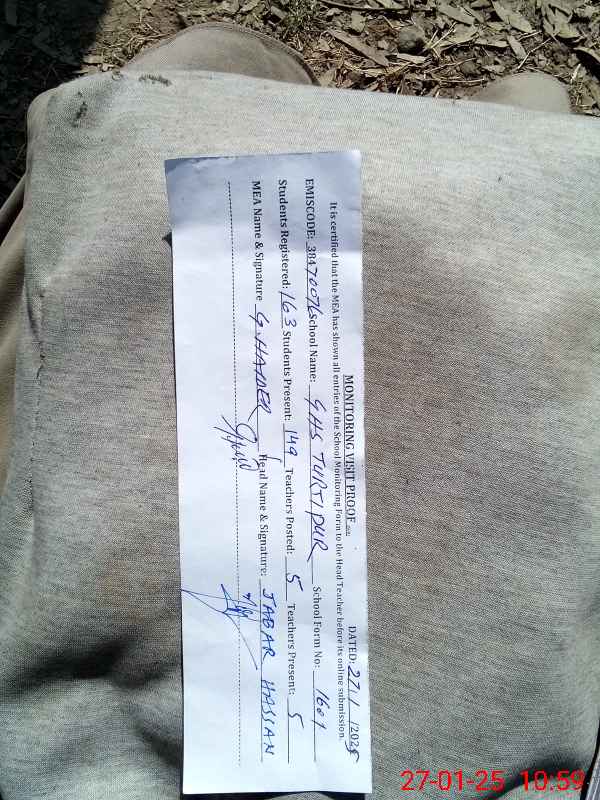 MONITORING VISIT PROOF
DATED: 27/1/2025
It is certified that the MEA has shown all entries of the School Monitoring Form to the Head Teacher before its online submission.
EMISCODE: 38470076 School Name: GHS TURTIPUR School Form No: 1601
Students Registered: 163 Students Present: 149 Teachers Posted: 5 Teachers Present: 5
MEA Name & Signature G. HAIDER Head Name & Signature: JABAR HASSAN
27-01-25 10:59